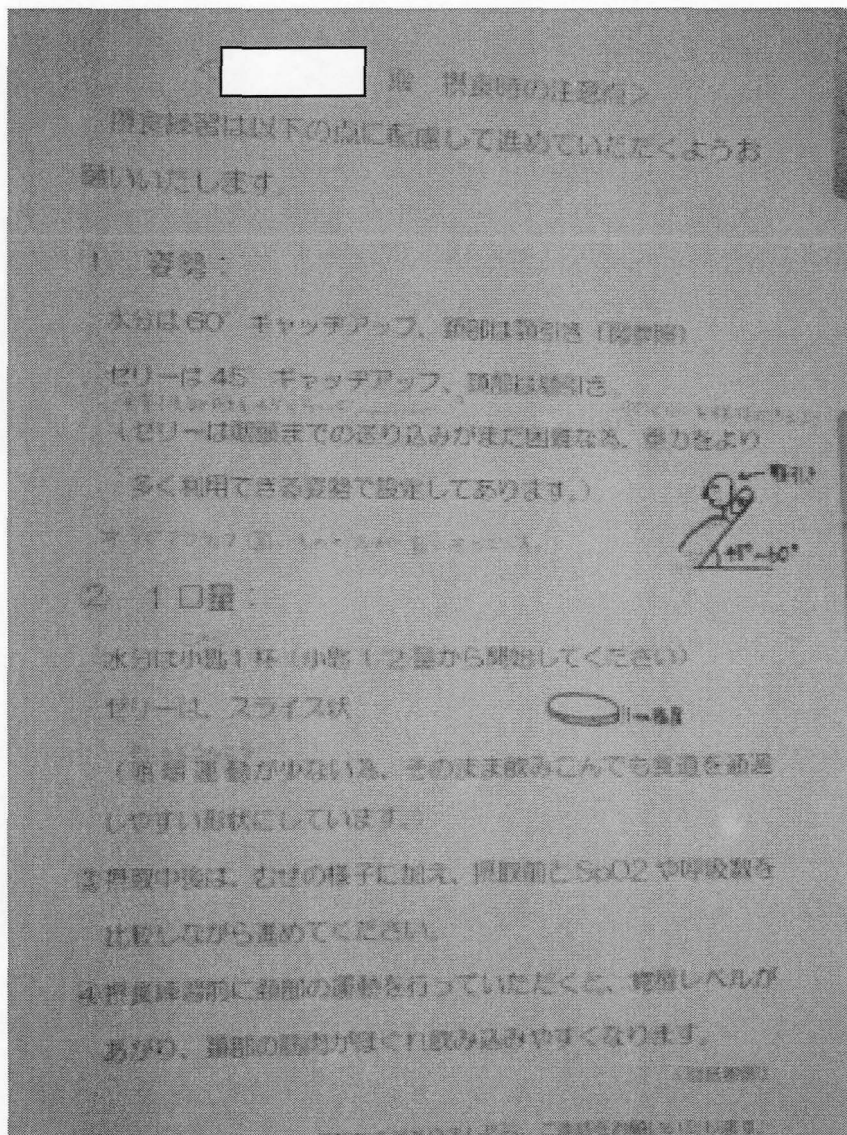 殿 摂食時の注意点>
摂食練習は以下の点に配慮して進めていただくようお
願いいたします。
① 姿勢：
水分は60° ギャッチアップ、頸部は顎引き（図参照）
ゼリーは45° ギャッチアップ、頸部は顎引き。
（ゼリーは咽頭までの送り込みがまだ困難な為、重力をより
多く利用できる姿勢で設定してあります。）
顎引き
45°~60°
② 1口量：
水分は小匙1杯（小匙1/2量から開始してください）
ゼリーは、スライス状
（咀嚼運動が少ない為、そのまま飲みこんでも食道を通過
しやすい形状にしています。）
③摂取中後は、むせの様子に加え、摂取前とSpO2や呼吸数を
比較しながら進めてください。
④摂食練習前に頸部の運動を行っていただくと、覚醒レベルが
あがり、頸部の筋肉がほぐれ飲み込みやすくなります。